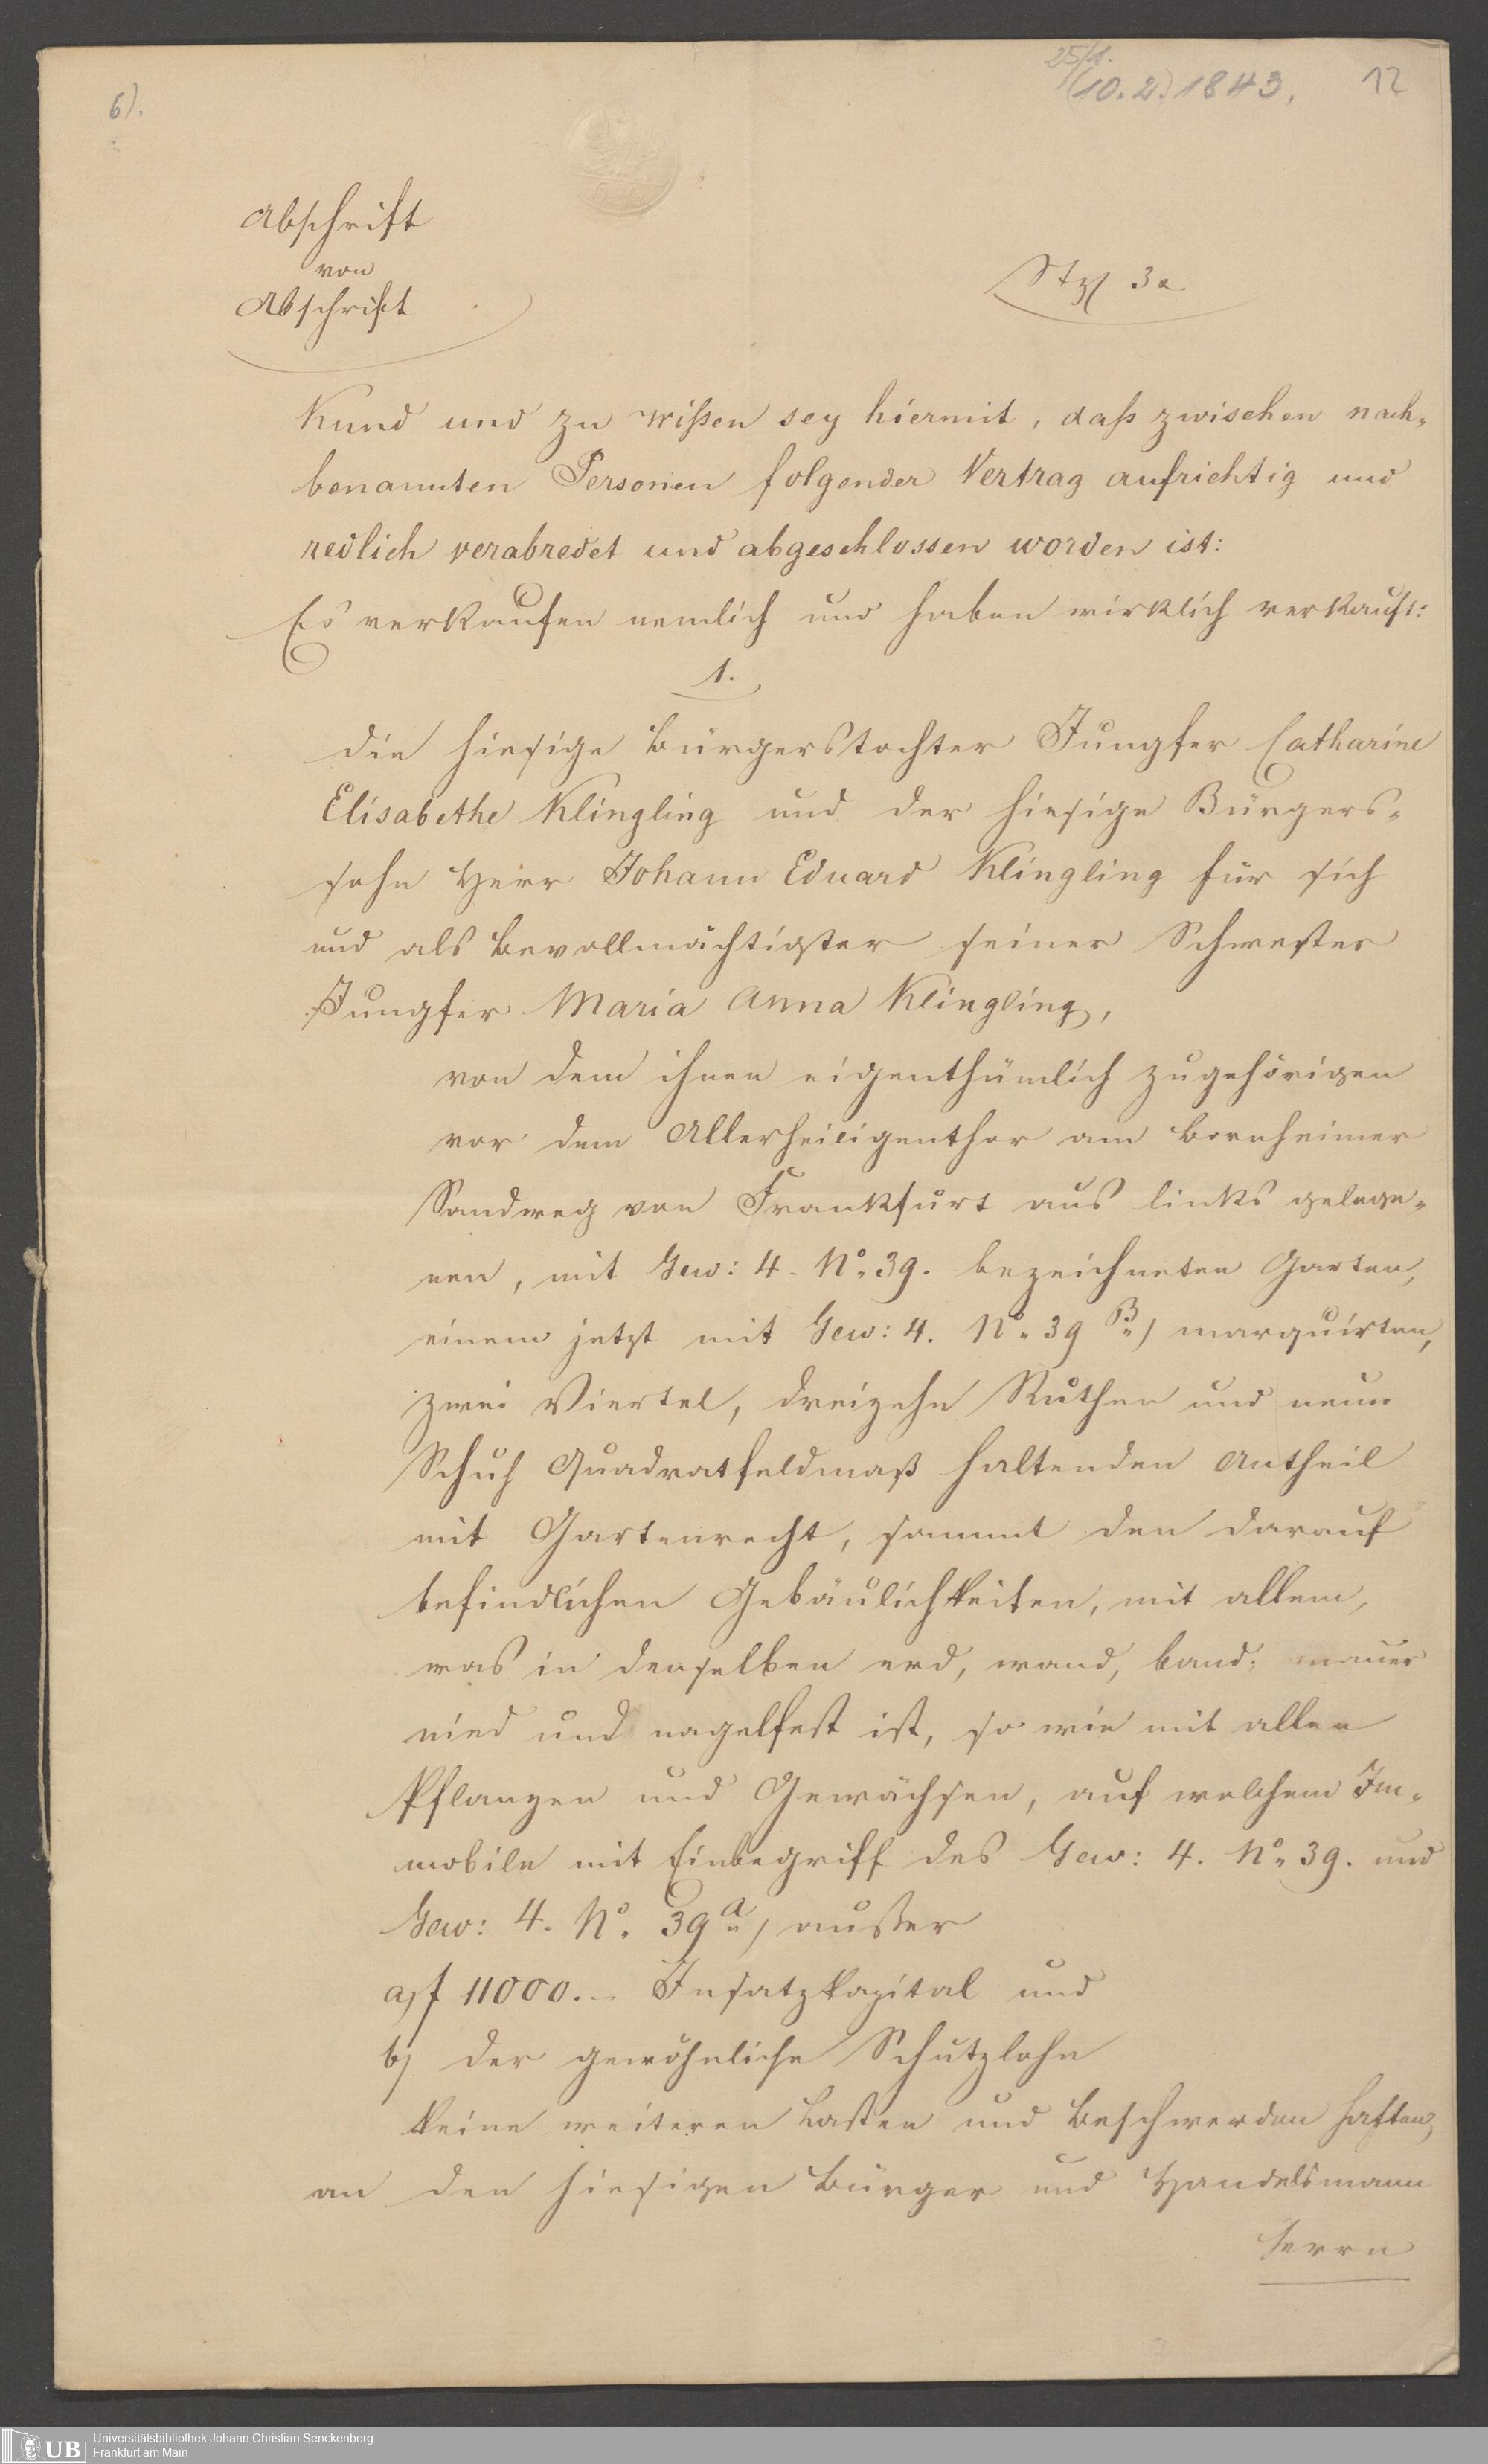 25/1.
(10.2.) 1843.
12
6).
Abschrift
von
Abschrift
Stzl 3a
Kund und zu wißen sey hiermit, daß zwischen nach-
benannten Personen folgender Vertrag aufrichtig und
redlich verabredet und abgeschlossen worden ist:
Es verkaufen nemlich und haben wirklich verkauft:
1.
die hiesige Bürgerstochter Jungfer Catharine
Elisabethe Klingling und der hiesige Bürgers-
sohn Herr Johann Eduard Klingling für sich
und als Bevollmächtigter seiner Schwester
Jungfer Maria Anna Klingling,
von dem ihnen eigenthümlich zugehörigen
vor dem Allerheiligenthor am Bornheimer
Sandweg von Frankfurt aus links gelege-
nen, mit Gew: 4. No. 39. bezeichneten Garten,
einem jetzt mit Gew: 4. No. 39 B) marquirten,
zwei Viertel, dreizehn Ruthen und neun
Schuh Quadratfeldmaß haltenden Antheil
mit Gartenrecht, sammt den darauf
befindlichen Gebäulichkeiten, mit allem,
was in denselben erd, wand, band, mauer
nied und nagelfest ist, so wie mit allen
Pflanzen und Gewächsen, auf welchem Im-
mobile mit Einbegriff des Gew: 4. No. 39. und
Gew: 4. No. 39 a) ausser
a) f 11000.- Insatzkapital und
b) der gewöhnliche Schutzlohn
keine weiteren Lasten und Beschwerden haften,
an den hiesigen Bürger und Handelsmann
Herrn
UB
Universitätsbibliothek Johann Christian Senckenberg
Frankfurt am Main